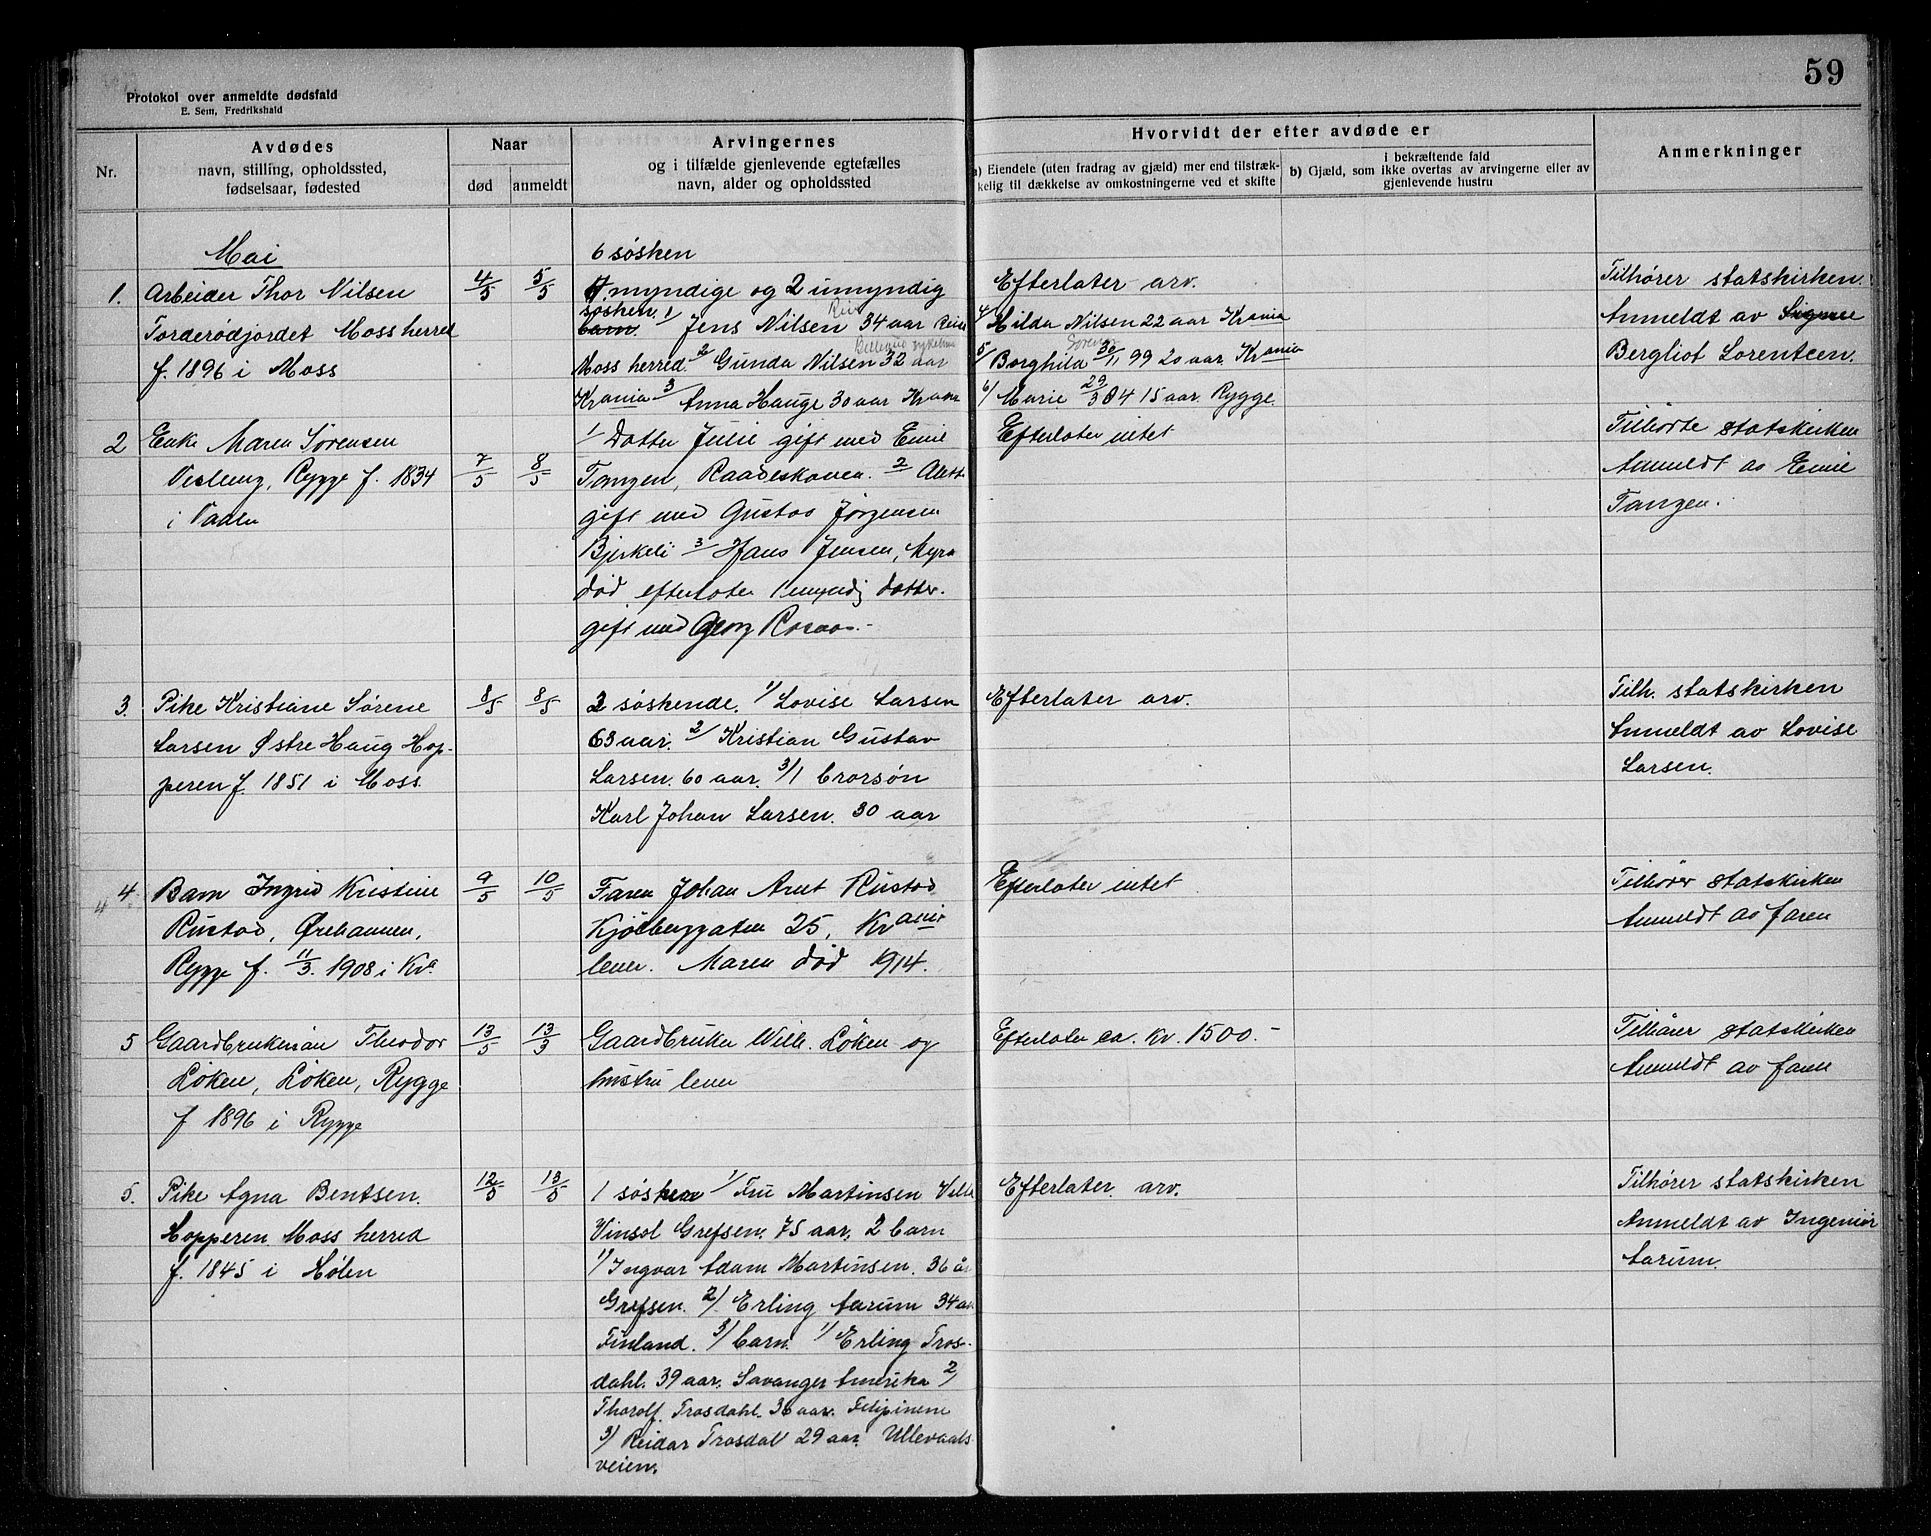 59
Protokol over anmeldte dødsfald
E. Sem, Fredrikshald
Nr.
Avdødes
navn, stilling, opholdssted,
fødselsaar, fødested
Naar
død
anmeldt
Arvingernes
og i tilfælde gjenlevende egtefælles
navn, alder og opholdssted
Hvorvidt der efter avdøde er
a) Eiendele (uten fradrag av gjæld) mer end tilstræk-
kelig til dækkelse av omkostningerne ved et skifte
i bekræftende fald
b) Gjæld, som ikke overtas av arvingerne eller av
gjenlevende hustru
Anmerkninger
Mai
1. Arbeider Thor Nilsen
Torderødjordet Moss herred
f. 1896 i Moss
4/5
5/5
6 søsken
4 myndige og 2 umyndig
søsken barn 1/ Jens Nilsen 34 aar
Moss herred 2/ Gunda Nilsen 32 aar
Krania 3/ Anna Hauge 30 aar Krania
Efterlater arv.
4/ Hilda Nilsen 22 aar Krania
5/ Borghild 30/11 99 20 aar. Krania
6/ Marie 29/3 04 15 aar. Rygge
Tilhører statskirken.
Anmeldt av
Bergliot Lorentzen.
2 Enke Maren Sørensen
Vesleng, Rygge f. 1834
i Vaaler
7/5
8/5
1/ Datter Julie gift med Emil
Tangen, Raadeskoven. 2/
gift med Gustav Jørgensen
Bjerkeli 3/ Hans Jensen, Myra
død efterlater 1 myndig datter.
gift med Georg
Efterlater intet
Tilhørte statskirken
Anmeldt av Emil
Tangen.
3. Pike Kristiane Sørene
Larsen Østre Haug Hop-
peren f. 1851 i Moss.
8/5
8/5
2 søskende. 1/ Lovise Larsen
63 aar. 2/ Kristian Gustav
Larsen. 60 aar. 3/ 1 brorsøn
Karl Johan Larsen. 30 aar
Efterlater arv.
Tilh. statskirken
Anmeldt av Lovise
Larsen.
4 4. Barn Ingrid Kristine
Rustad, Ørehavnen,
Rygge f. 11/3. 1908 i Kra
9/5
10/5
Faren Johan Arnt Rustad
Kjølberggaten 25, Krania
lever. Moren død 1914.
Efterlater intet
Tilhører statskirken
Anmeldt av faren
5 Gaardbrukersøn Theodor
Løken, Løken, Rygge
f 1896 i Rygge
13/5
13/3
Gaardbruker Wilh. Løken og
hustru lever
Efterlater ca. Kr. 1500.-
Tilhører statskirken
Anmeldt av faren
5. Pike Agna Bentsen.
Hopperen. Moss herred
f. 1845 i Hølen
12/5
13/5
1 søsken 1/ Fru Martinsen Villa
Vinsol Grefsen. 75 aar. 2 barn
1/ Ingvar Adam Martinsen. 36 år
Grefsen. 2/ Erling Aarum 34 aar
Finland. 3/ barn. 1/ Erling Tros-
dahl. 39 aar. Savanger Amerika 2/
Thorolf. Trosdahl. 36 aar. Filipinene
3/ Reidar Trosdal 29 aar. Ullevaals-
veien.
Efterlater arv.
Tilhører statskirken
Anmeldt av Ingeniør
Aarum.